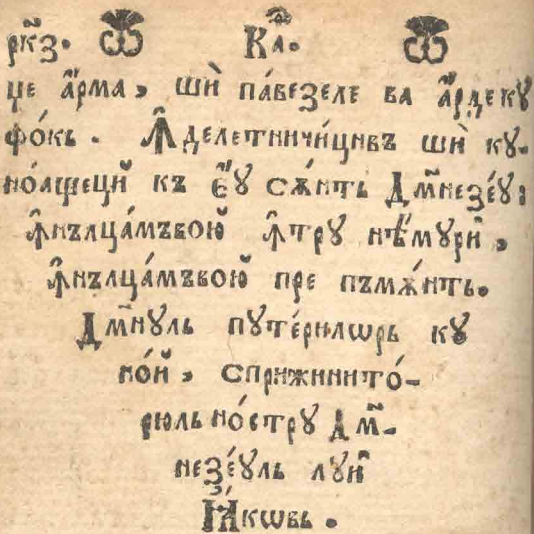 рк҃з. Ка҃.
це а҆́рма, шѝ па́везеле ва а҆́рде ку
фо́кь. Ꙟделетничи́цивъ шѝ ку-
но́ащецй къ Є҆́у сѫ́нть Дм҃незе́у:
ꙟнълца́мъвою ꙟтру нѣ́мурй,
ꙟнълца́мъвою пре пъмѫ́нть.
Дм҃нуль путе́рилѡрь ку
но́й, сприжинито́-
рюль но́стру Дм҃-
незе́уль луй
Іа́кѡвь.